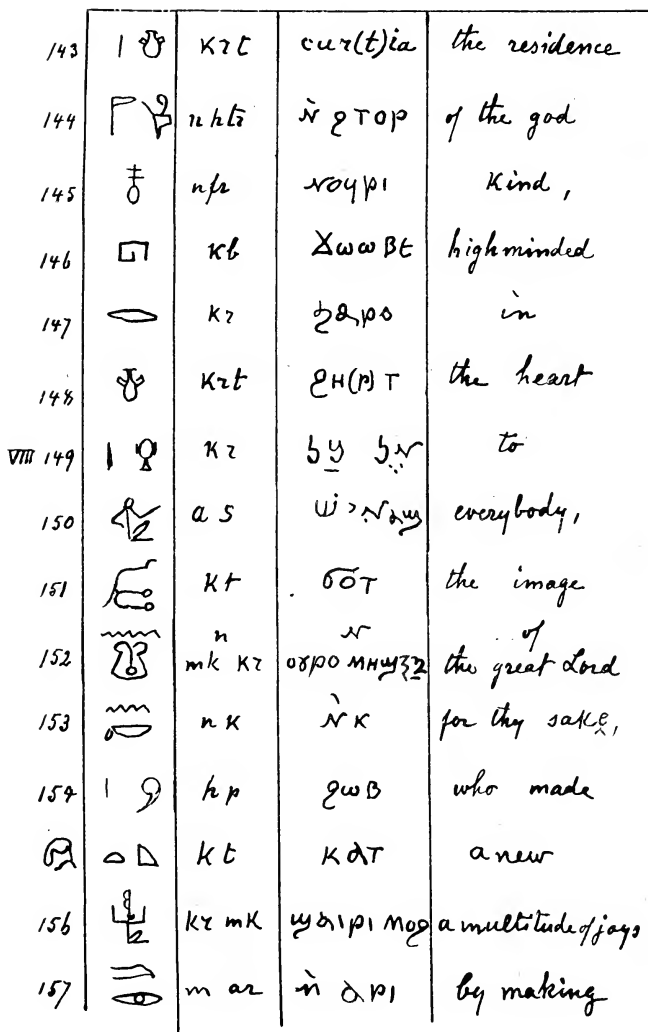 143 krt cur(t)ia the residence
144 n htr ǹ ϩⲧⲟⲣ of the god
145 nfr ⲛⲟⲩⲣⲓ kind,
146 kb ϫⲱⲱⲃⲉ highminded
147 kr ϧⲁⲣⲟ in
148 krt ϩⲏ(ⲣ)ⲧ the heart
VIII 149 kr to
150 a s everybody,
151 kt ϭⲟⲧ the image
n ⲛ of
152 mk kr ⲟⲩⲣⲟ the great Lord
153 n k ⲛ̀ ⲕ for thy sake,
154 hp ϩⲱⲃ who made
kt ⲕⲁⲧ anew
156 kr mk ϣⲁⲓⲣⲓ ⲙⲟϩ a multitude of joys
157 m ar ⲛ̀ ⲁⲣⲓ by making